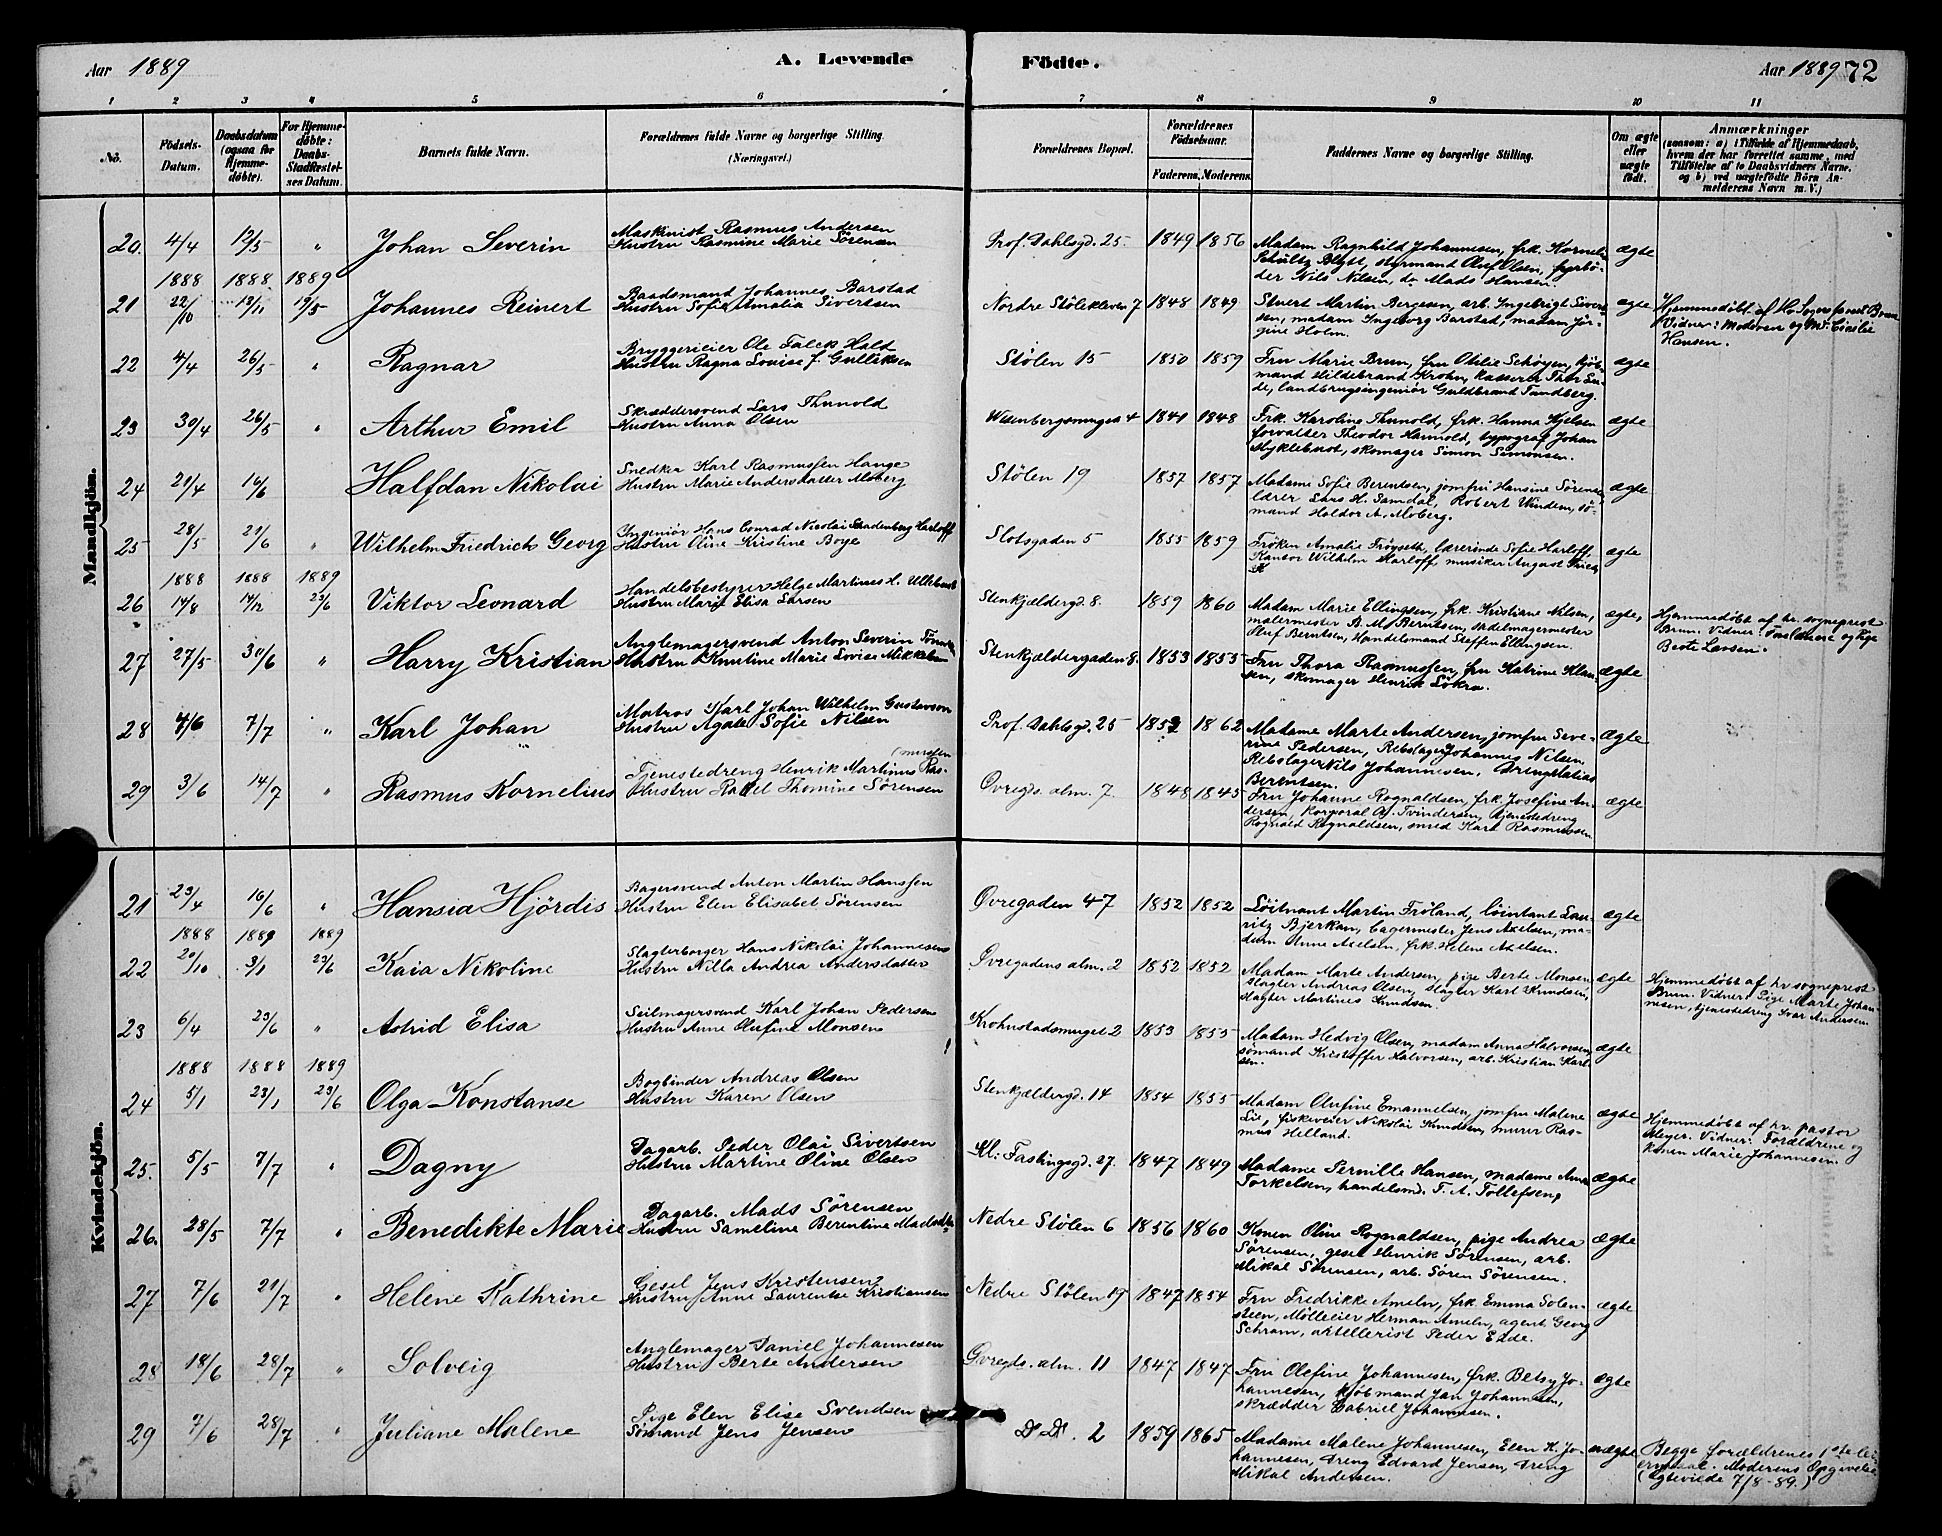 Aar 1889
A. Levende
Födte.
Aar 1889
72
1 2 3 4 5 6 7 8 9 10 11
No.
Födsels-
Datum.
Daabsdatum
(ogsaa for
Hjemme-
döbte).
For Hjemme-
döbte:
Daabs-
Stadfæstel-
ses Datum.
Barnets fulde Navn.
Forældrenes fulde Navne og borgerlige Stilling.
(Næringsvei.)
Forældrenes Bopæl.
Forældrenes
Födselsaar.
Faderens. Moderens.
Faddernes Navne og borgerlige Stilling.
Om ægte
eller
uægte
født.
Anmærkninger
(saasom: a) i Tilfælde af Hjemmedaab,
hvem der har forrettet samme, med
Tilföielse af to Daabsvidners Navne.
og b) ved uægtefödte Börn An-
melderens Navn m. V.)
Mandkjön.
20. 4/4 12/5 " Johan Severin
Maskinist Rasmus Andersen
Hustru Rasmine Marie Sörensen
Prof. Dahlsgd. 25. 1849 1856
Madam Ragnhild Johannesen, frk. Kornelia
Schultz Blytt, styrmand Oluf Olsen, fyrbö-
der Nils Nilsen, do Mads Hansen.
ægte
1888 1888 1889
21 22/10 12/11 19/5 Johannes Reinert
Baadsmand Johannes Barstad
Hustru Sofie Amalia Sivertsen
Nordre Stölekleven 7 1848 1849
Stuert Martin Bergesen, arb. Ingebrigt Sivert-
sen, madam Ingeborg Barstad, madam Jör-
gine Holm.
ægte
Hjemmedöbt af Hr. Sognepræst Brun
Vidner: Moderen og Md. Cecilie
Hansen.
22 4/4 26/5 " Ragnar
Bryggerieier Ole Falck Hald
Hustru Ragna Louise f. Gulliksen
Stölen 15 1850 1859
Fru Marie Brun, fru Otilie Schöyen, kjöb-
mand Hildebrand Krohn, kasserer Thor Lu-
de, landbrugsingeniör Guldbrand Tandberg.
ægte
23 30/4 26/5 " Arthur Emil
Skræddersvend Lars Thunold
Hustru Anna Olsen
Widenbergsmuget 4 1841 1848
Frk. Karoline Thunold, frk. Hanna Kjelsen
forvalter Theodor Hannold, typograf Johan
Myklebust, skomager Simon Simonsen.
ægte
24 21/4 16/6 Halfdan Nikolai
Snedker Karl Rasmussen Hauge
Hustru Marie Andersdatter Moberg
Stölen 19 1857 1857
Madam Sofie Berentsen, jomfru Hansine Sörensen,
lærer Lars H. Samdal, Robert Winden, sö-
mand Haldor A. Moberg.
ægte
25 28/5 21/6 " Wilhelm Friedrich Georg
Ingeniör Hans Conrad Nicolai Schadenberg Harloff
Hustru Oline Kristine Boye
Slotsgaden 5 1855 1859
Fröken Amalie Fröyseth, lærerinde Sofie Harloff,
Kantor Wilhelm Harloff, musiker August
ægte
1888 1888 1889
26 14/8 14/12 23/6 Viktor Leonard
Handelsbestyrer Helge Martinus H.
Hustru Marie Elisa Larsen
Stenkjældergd. 8. 1859 1860
Madam Marie Ellingsen, frk. Kristiane Nilsen,
malermester B. M. Berntsen, sadelmagermester
Oluf Berntsen, Handelsmand Steffen Ellingsen.
ægte,
Hjemmedöbt af hr. sogneprest
Brun. Vidner: Forældrene og Pige
Berte Larsen.
27 27/5 30/6 " Harry Kristian
Anglemagersvend Anton Severin
Hustru Knutine Marie Lovise Mikkelsen
Stenkjældergaden 8. 1853 1855
Fru Thora Rasmussen, fru Katrine Klau-
sen, skomager Henrik Lökra.
ægte
28 4/6 7/7 " Karl Johan
Matros Karl Johan Wilhelm Gustavson
Hustru Agate Sofie Nilsen
Prof. Dahlsgd. 25 1859 1862
Madame Marte Andersen, jomfru Seve-
rine Pedersen, Rebslager Johannes Nilsen
Rebslager Nils Johannesen, Dreng Matias
Berentsen.
ægte
29 3/6 14/7 " Rasmus Kornelius
(mussen
Tjenestedreng Henrik Martinus Ras-
Hustru Rakel Thomine Sörensen
Övregds. alm. 7. 1848 1845
Fru Johanne Rognaldsen, frk. Josefine An-
dersen, Korporal A. Tvindersen, tjenestedreng
Rognald Rognaldsen, smed Karl Rasmussen
ægte
Kvindekjön.
21 23/4 16/6 " Hansia Hjördis
Bagersvend Anton Martin Hanssen
Hustru Elen Elisabet Sörensen
Övregaden 47 1852 1852
Löitnant Martin Fröland, löintant Lau-
ritz Bjerkan, bagermester Jens Axelsen, ma-
dam Anne Axelsen, frk. Helene Axelsen.
ægte
1888 1889 1889
22 20/10 3/1 23/6 Kaia Nikoline
Slagterborger Hans Nikolai Johannesen
Hustru Nilla Andrea Andersdatter
Övregadens alm. 2 1852 1852
Madam Marte Andersen, pige Berte Monsen
slagter Andreas Olsen, slagter Karl Knudsen,
slagter Martines Knudsen.
ægte
Hjemmedöbt af hr sogneprest
Brun. Vidner: Pige Marte Johan-
nesen, tjenestedreng Ivar Andersen.
23 6/4 23/6 " Astrid Elisa
Seilmagersvend Karl Johan Pedersen
Hustru Anne Olufine Monsen
Krohnstadsmuget 2 1853 1855
Madam Hedvig Olsen, madam Anna Halvorsen,
sömand Kristoffer Halvorsen, arb. Kristian Karl-
sen.
ægte
1888 1888 1889
24 5/1 23/1 23/6 Olga Konstanse
Bogbinder Andreas Olsen
Hustru Karen Olsen
Stenkjældergd. 14 1854 1855
Madam Olufine Emanuelsen, jomfru Malene
Lie, fiskeveier Nikolai Knudsen, murer Ras-
mus Helland.
ægte
Hjemmedöbt af hr. pastor
Meyer. Vidner: Forældrene og
konen Marie Johannesen.
25. 5/5 7/7 " Dagny
Dagarb. Peder Olai Sivertsen
Hustru Martine Oline Olsen
Kl: Fastingsgd. 27. 1847 1849
Madame Pernille Hansen, madame Anna
Torkelsen, handelsmd. T. A. Tollefsen,
ægte
26. 28/5 7/7 " Benedikte Marie
Dagarb. Mads Sörensen
Hustru Sameline Berentine
Nedre Stölen 6 1856 1860
Konen Oline Rognaldsen, pige Andrea
Sörensen, gesel Henrik Sörensen, arb.
Mikal Sörensen, arb. Sören Sörensen.
ægte
27 7/6 21/7 " Helene Kathrine
Gesel Jens Kristensen
Hustru Anne Laurentse Kristiansen
Nedre Stölen 19 1847 1854
Fru Fredrikke Ameln, frk. Emma Solen-
steen, Mölleeier Herman Ameln, agent Georg
Schram, artellerist Peder Eide.
ægte
28 18/6 28/7 " Solveig
Anglemager Daniel Johannesen
Hustru Berte Andersen
Övregds. alm. 11 1847 1847
Fru Olefine Johannesen, frk. Betsy Jo-
hannesen, kjöbmand Jan Johannesen,
skrædder Gabriel Johannesen.
ægte
29 7/6 28/7 " Juliane Malene
Pige Elen Elise Svendsen
Sömand Jens Jensen
Do Do. 2 1859 1865
Madame Malene Johannesen, Elen K. Jo-
hannesen, dreng Edvard Jensen, dreng
Mikal Andersen.
uægte
Begge forældrenes 1ste lei-
ermaal. Moderens Opgivelse
(Egteviede 7/8-89.)